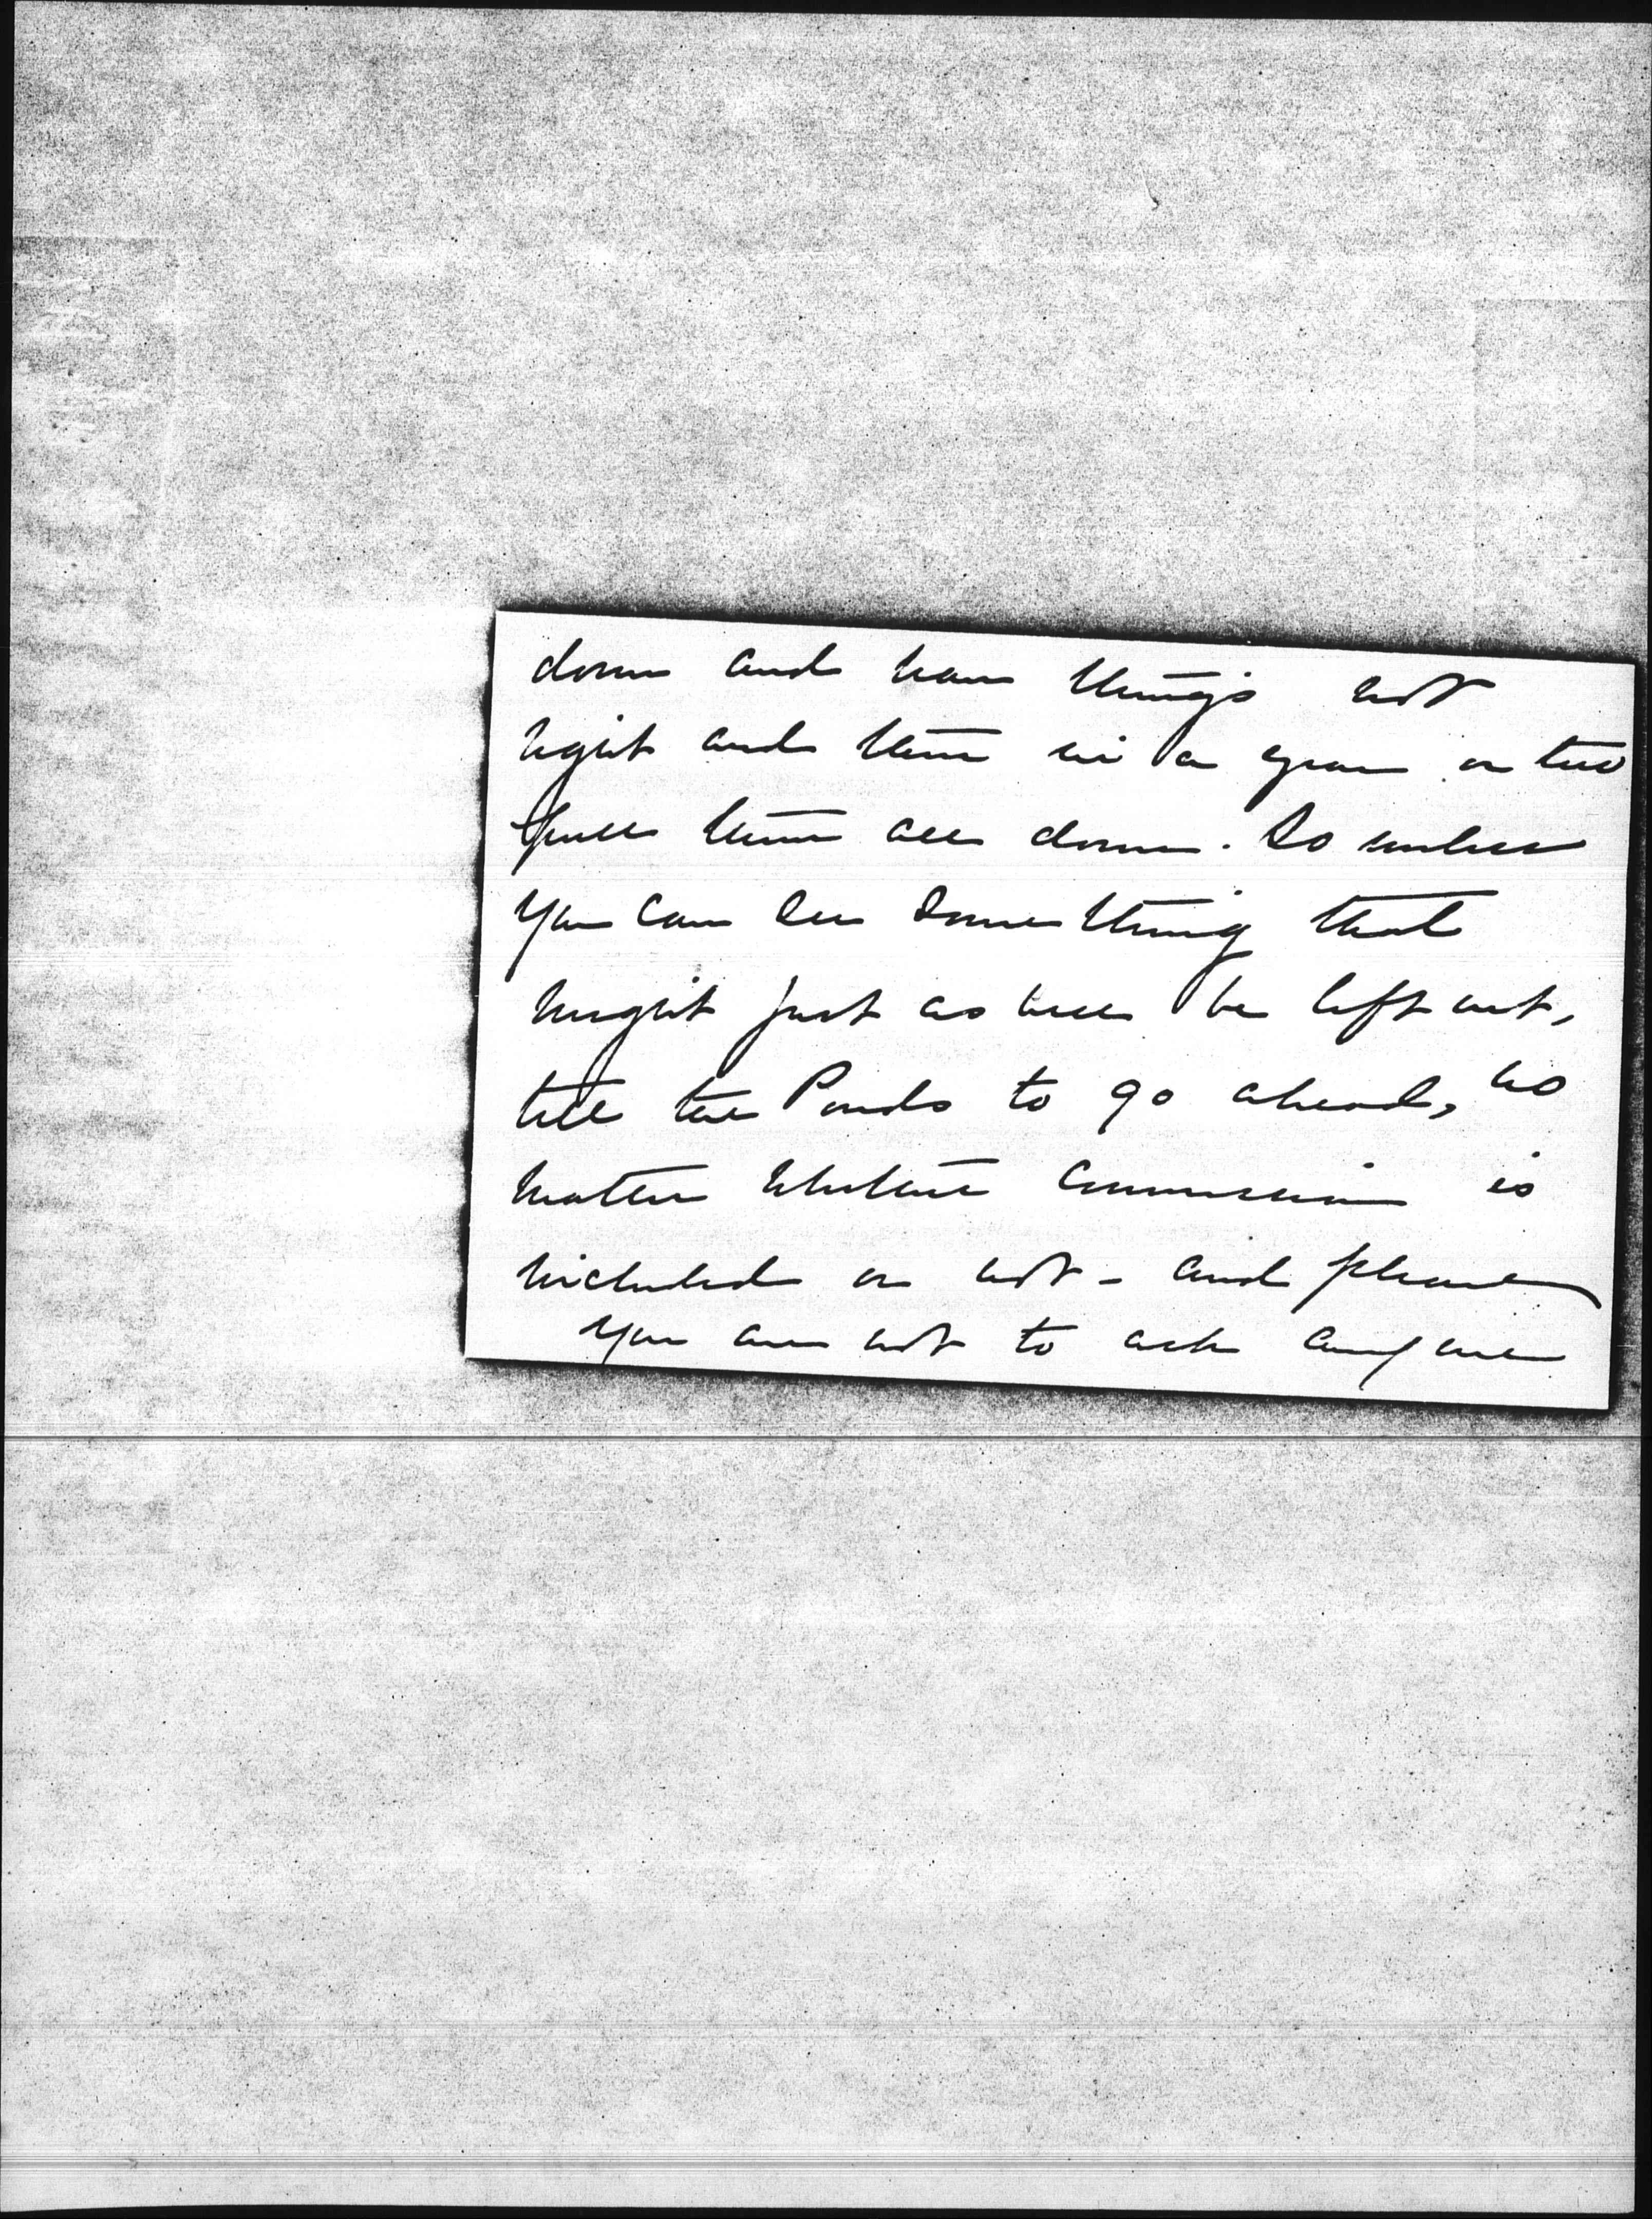 down and have things not
right and then in a year or two
pull them all down. So unless
you can see something that
might just as well be left out,
tell the Ponds to go ahead, no
matter whether commission is
included or not - and please
you are not to ask any one